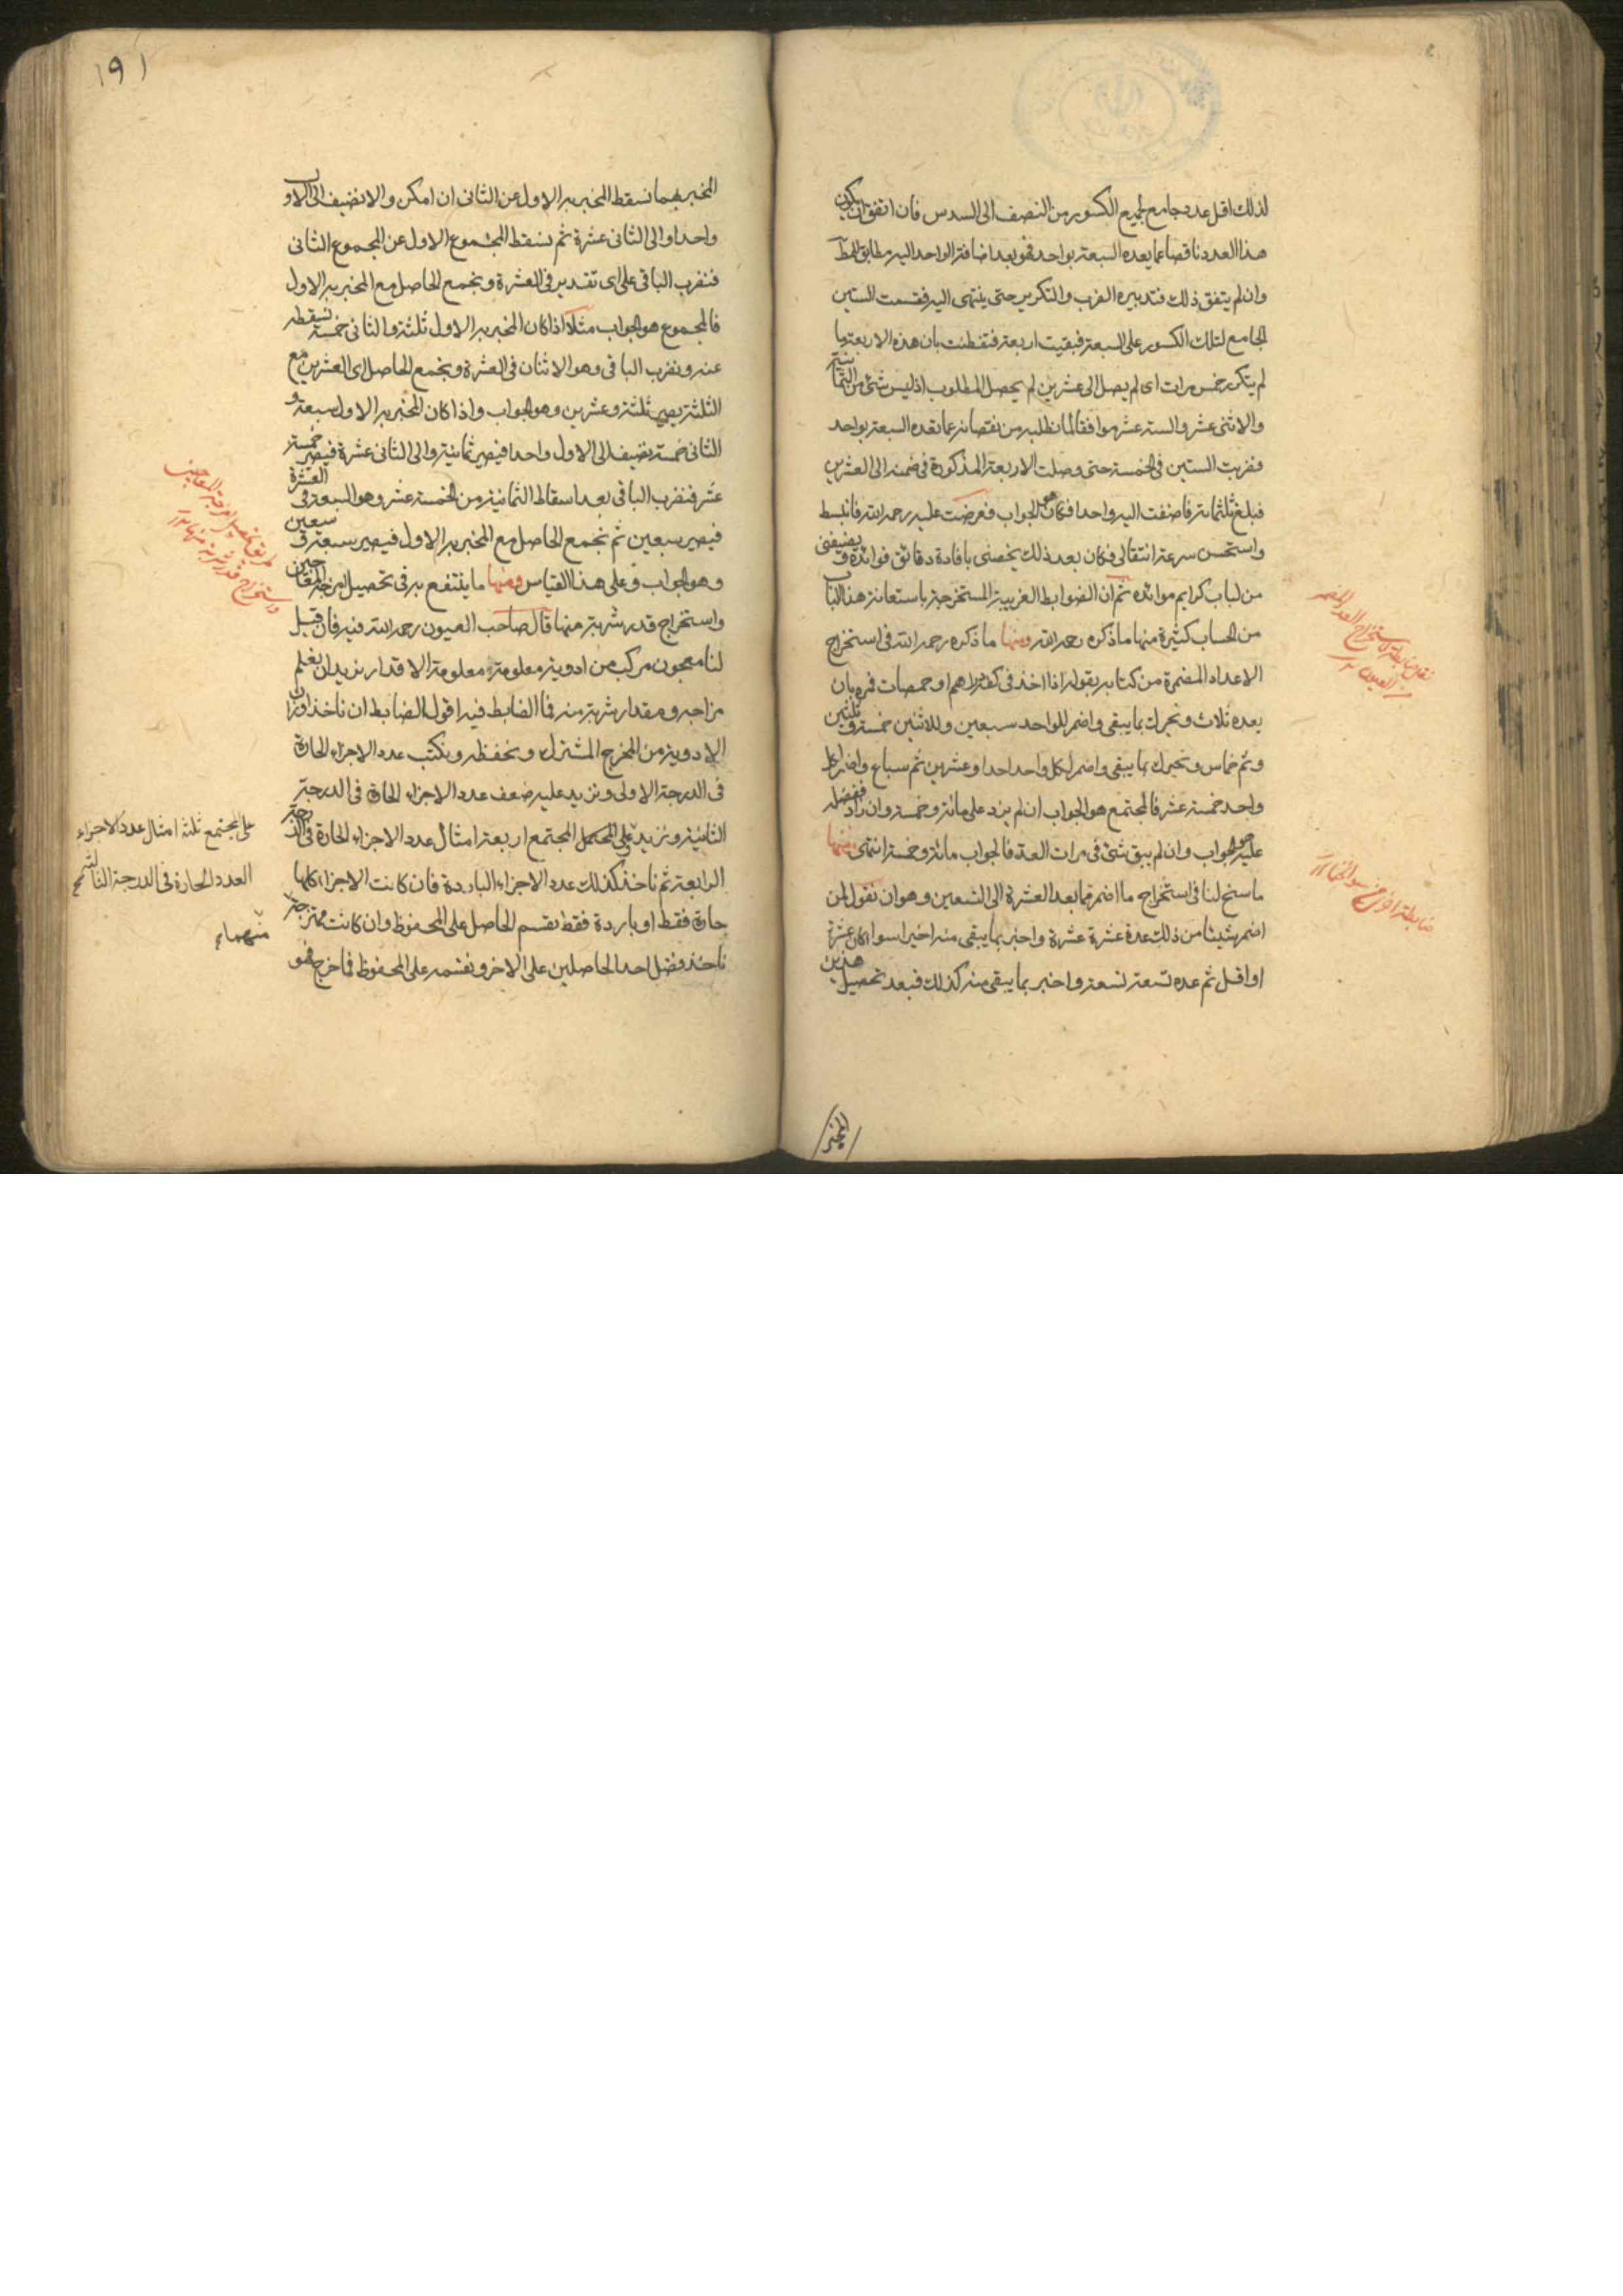 لذلك اقل عدد جامع لجميع الكسور من النصف الى السدس فان اتفق ان يكون
هذا العدد ناقصا عما يعده السبعة بواحد فهو بعد اضافة الواحد اليه مطابق للمط
وان لم يتفق ذلك فتدبيره الضرب والتكرير حتى ينتهى اليه فقسمت الستين
الجامع لتلك الكسور على السبعة فبقيت اربعة فتفطنت بان هذه الاربعة ما
لم يتكرر خمس مرات اى لم يصل الى عشرين لم يحصل المطلوب اذ ليس شئ من الثمانية
والاثنى عشر والستة عشر موافقا لما نطلبه من نقصانه عما تعده السبعة بواحد
فضربت الستين فى الخمسة حتى وصلت الاربعة المذكورة فى ضمنه الى العشرين
فبلغ ثلثمائة فاضفت اليه واحدا فكان هو الجواب فعرضت عليه رحمه الله فانبسط
واستحسن سرعة انتقالى فكان بعد ذلك يخصنى بافادة دقائق فوائده و يضيفنى
من لباب كرايم موائده ثم ان الضوابط الغريبة المستخرجة باستعانة هذا الباب
من الحساب كثيرة منها ما ذكره رحمه الله ومنها ما ذكره رحمه الله فى استخراج
الاعداد المضمرة من كتابه بقوله اذا اخذ فى كفه دراهم او حمصات فمره بان
يعده ثلاث ويخبرك بما يبقى واضمر للواحد سبعين وللاثنين خمسة وثلثين
وثم خماس ويخبرك بما يبقى واضمر لكل واحد احدا وعشرين ثم سباع واضمر لكل
واحد خمسة عشر فالمجتمع هو الجواب ان لم يزد على مائة وخمسة وان زاد ففضله
عليه هو الجواب وان لم يبق شئ فى مرات العد فالجواب مائة وخمسة انتهى ومنها
ما سنح لنا فى استخراج ما اضمر فيما بعد العشرة الى التسعين وهو ان نقول لمن
اضمر شيئا من ذلك عده عشرة عشرة واخبر بما يبقى منه اخيرا سواء كان عشرة
او اقل ثم عده تسعة تسعة واخبر بما يبقى منه كذلك فبعد تحصيل هذين
المخبر
نقل ضابطة استخراج العدد المضمر
من العيون
ضابطة اخرى من سوانح
١٩١
المخبر بهما نسقط المخبر به الاول عن الثانى ان امكن والا نضيف الى الاول
واحدا والى الثانى عشرة ثم نسقط المجموع الاول عن المجموع الثانى
فنضرب الباقى على اى تقدير فى العشرة ونجمع الحاصل مع المخبر به الاول
فالمجموع هو الجواب مثلا اذا كان المخبر به الاول ثلثة والثانى خمسة نسقطه
عنه ونضرب الباقى وهو الاثنان فى العشرة ونجمع الحاصل اى العشرين مع
الثلثة يصير ثلثة وعشرين وهو الجواب واذا كان المخبر به الاول سبعة و
الثانى خمسة نضيف الى الاول واحدا فيصير ثمانية والى الثانى عشرة فيصير خمسة
عشر فنضرب الباقى بعد اسقاط الثمانية من الخمسة عشر وهو السبعة فى العشرة
فيصير سبعين ثم نجمع الحاصل مع المخبر به الاول فيصير سبعة و سبعين
وهو الجواب وعلى هذا القياس ومنها ما ينتفع به فى تحصيل امزجة المعاجين
واستخراج قدر شربة منها قال صاحب العيون رحمه الله فيه فان قيل
لنا معجون مركب من ادوية معلومة معلومة الاقدار نريد ان نعلم
مزاجه ومقدار شربة منه فما الضابط فيه اقول الضابط ان ناخذ اوزان
الادوية من المخرج المشترك ونحفظه ونكتب عدد الاجزاء الحارة
فى الدرجة الاولى ونزيد عليه ضعف عدد الاجزاء الحارة فى الدرجة
الثانية ونزيد على المجتمع اربعة امثال عدد الاجزاء الحارة فى الدرجة
الرابعة ثم ناخذ كذلك عدد الاجزاء الباردة فان كانت الاجزاء كلها
حارة فقط او باردة فقط نقسم الحاصل على المحفوظ وان كانت ممتزجة
ناخذ فضل احد الحاصلين على الاخر ونقسمه على المحفوظ فما خرج فهو
طريق تحصيل امزجة المعاجين
واستخراج قدر شربة منها
على المجتمع ثلثة امثال عدد الاجزاء
العدد الحارة فى الدرجة الثالثة